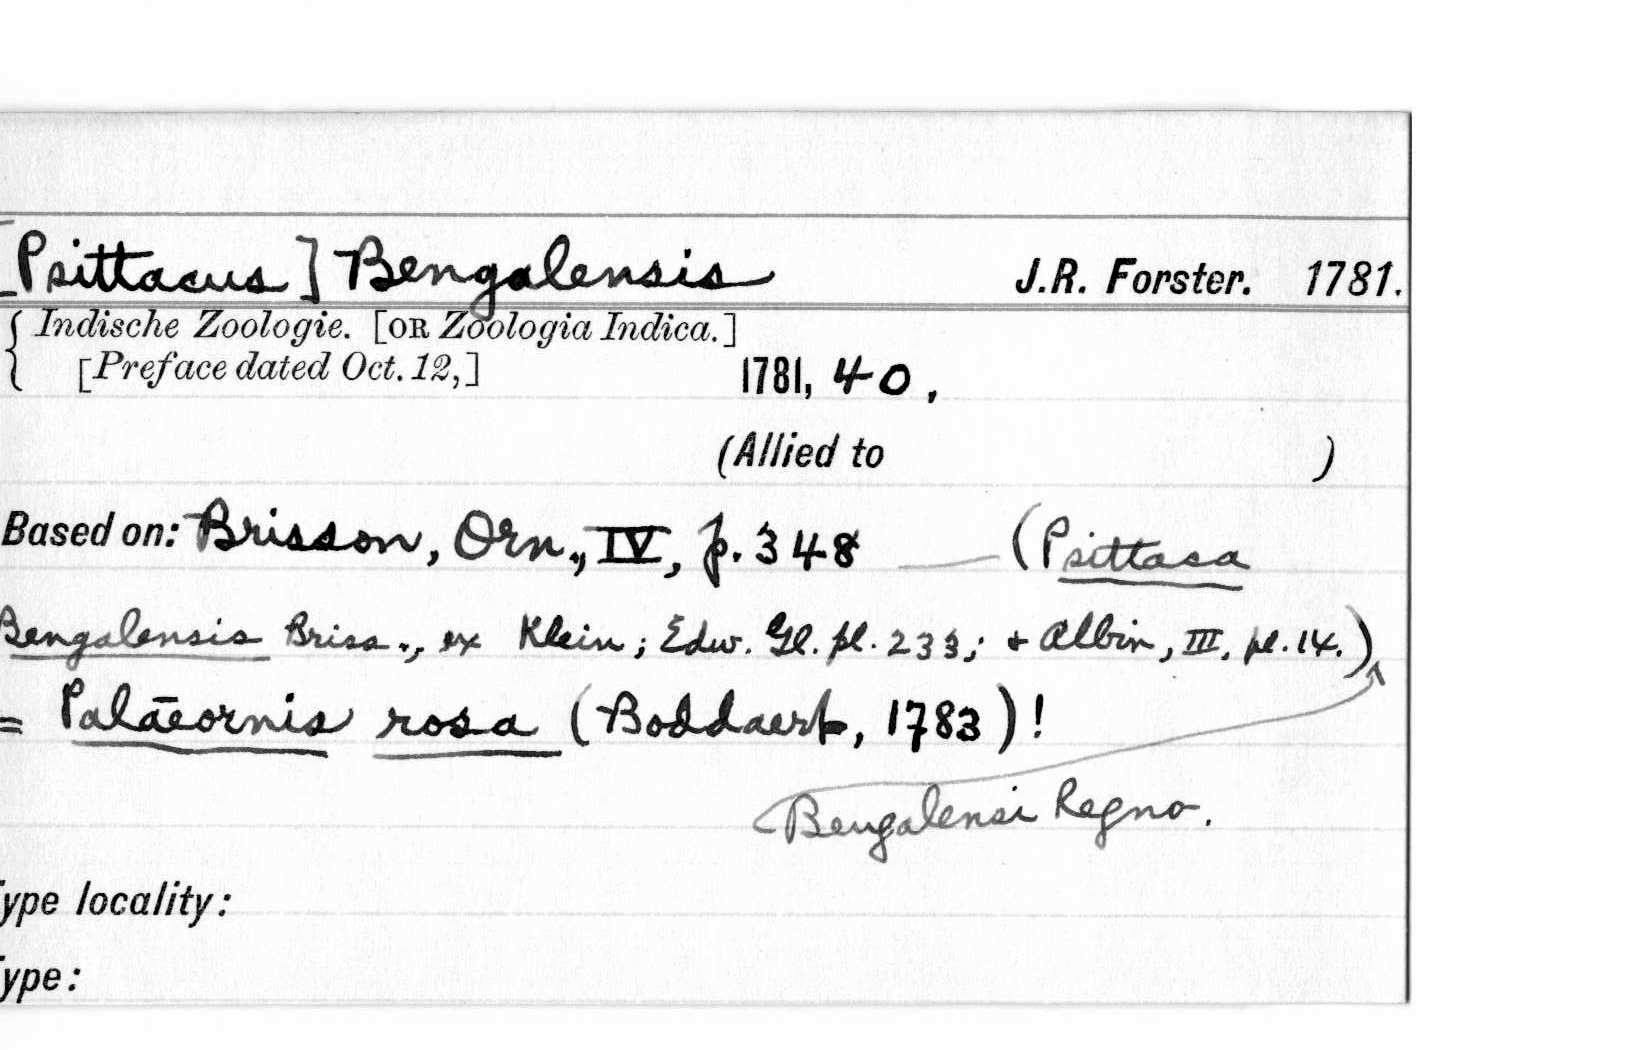 [Psittacus] Bengalensis J.R. Forster. 1781.
Indische Zoologie. [OR Zoologia Indica.]
[Preface dated Oct. 12,] 1781, 40,
(Allied to )
Based on: Brisson, Orn., IV, p. 348 — (Psittaca
Bengalensis Briss., ex Klein; Edw. Gl. pl. 233; + Albin, III, pl. 14.)
= Palaeornis rosa (Boddaert, 1783)!
Bengalensi Regno.
ype locality:
ype: